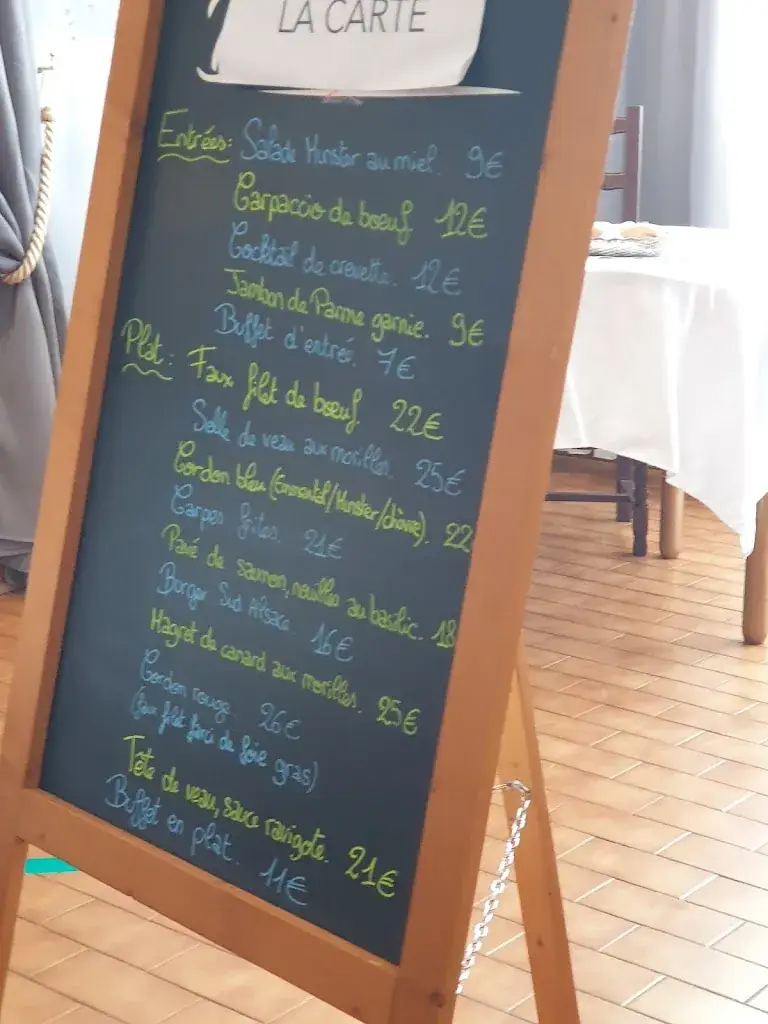 LA CARTE
Entrées: Salade Munster au miel. 9€
Carpaccio de boeuf 12€
Cocktail de crevette. 12€
Jambon de Parme garnie. 9€
Buffet d'entrée. 7€
Plat: Faux filet de boeuf. 22€
Selle de veau aux morilles. 25€
Cordon bleu (Emmental/Munster/chèvre). 22
Carpes frites. 21€
Pavé de saumon, nouilles au basilic. 18
Burger Sud Alsace. 16€
Magret de canard aux morilles. 25€
Cordon rouge. 26€
(filet farci de foie gras)
Tête de veau, sauce ravigote. 21€
Buffet en plat. 11€